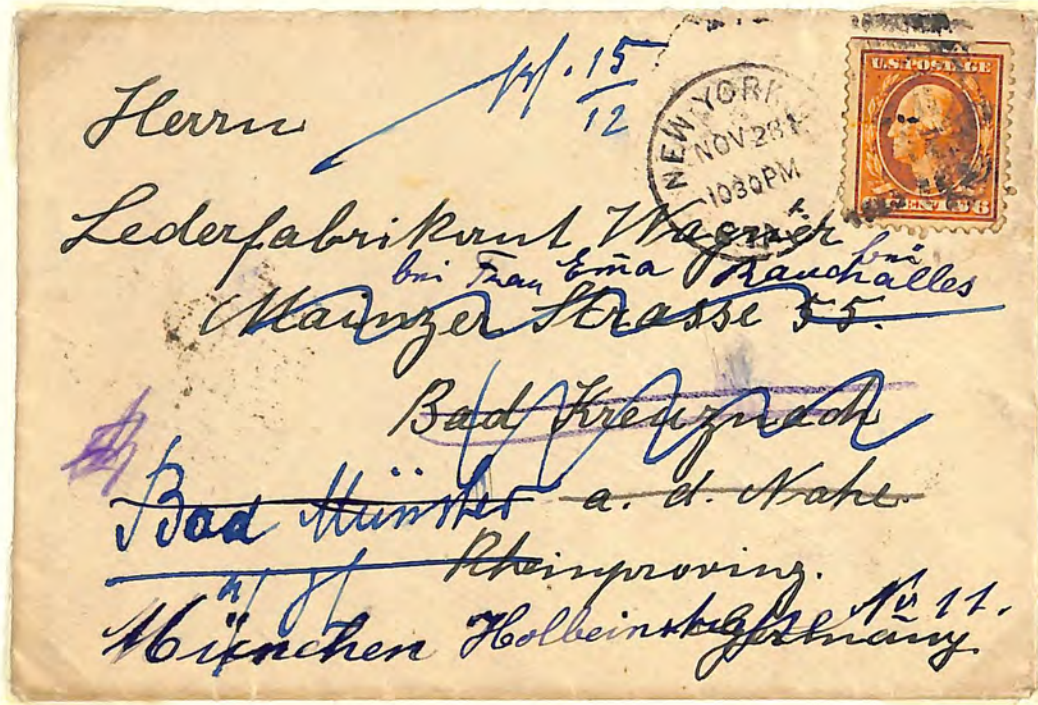 Herrn
15
12
NEW YORK
NOV 28
1030 PM
U.S. POSTAGE
6 CENTS 6
Lederfabrikant Wagner
bei Frau Em̄a Rauchalles
bei
Mainzer Strasse 55.
Bad Kreuznach
Bad Münster a. d. Nahe.
Rheinprovinz.
München Holbeinstraße No 11.
Germany